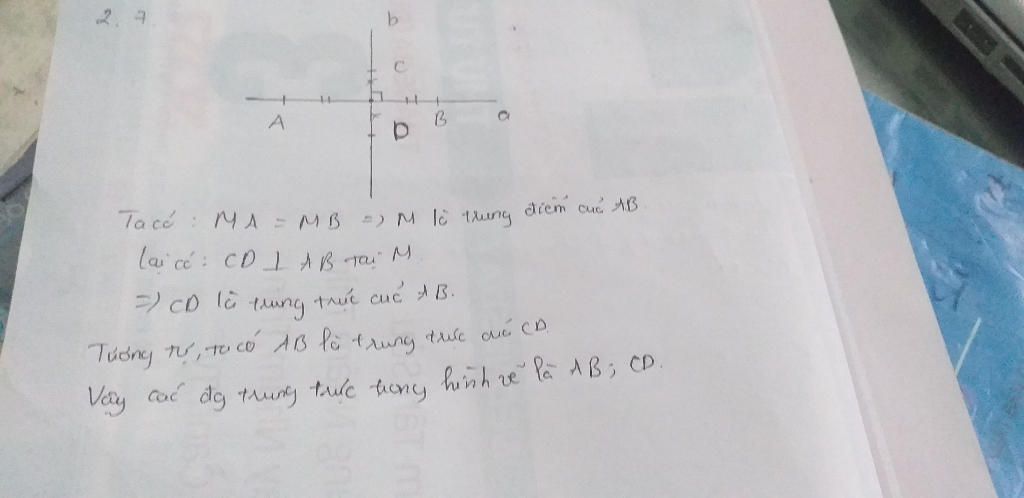 2.7.
b
C
A
D
B
a
Ta có: MA = MB => M là trung điểm cuả AB.
Lại có: CD ⊥ AB tại M.
=> CD là trung trực cuả AB.
Tương tự, ta có AB là trung trực cuả CD.
Vậy các đg trung trực trong hình vẽ là AB; CD.